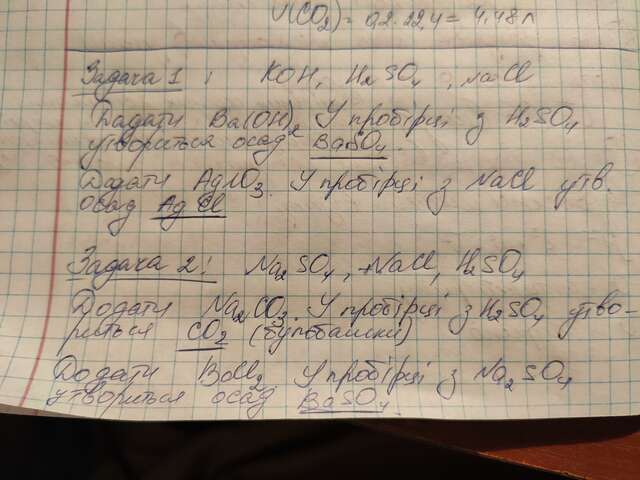 V(CO₂) = 0,2 · 22,4 = 4,48 л
Задача 1: KOH, H₂SO₄, NaCl
Додати Ba(OH)₂ У пробірці з H₂SO₄
утвориться осад BaSO₄.
Додати AgNO₃. У пробірці з NaCl утв.
осад AgCl
Задача 2: Na₂SO₄, NaCl, H₂SO₄
Додати Na₂CO₃. У пробірці з H₂SO₄ утво-
риться CO₂ (бульбашки)
Додати BaCl₂ У пробірці з Na₂SO₄
утвориться осад BaSO₄.